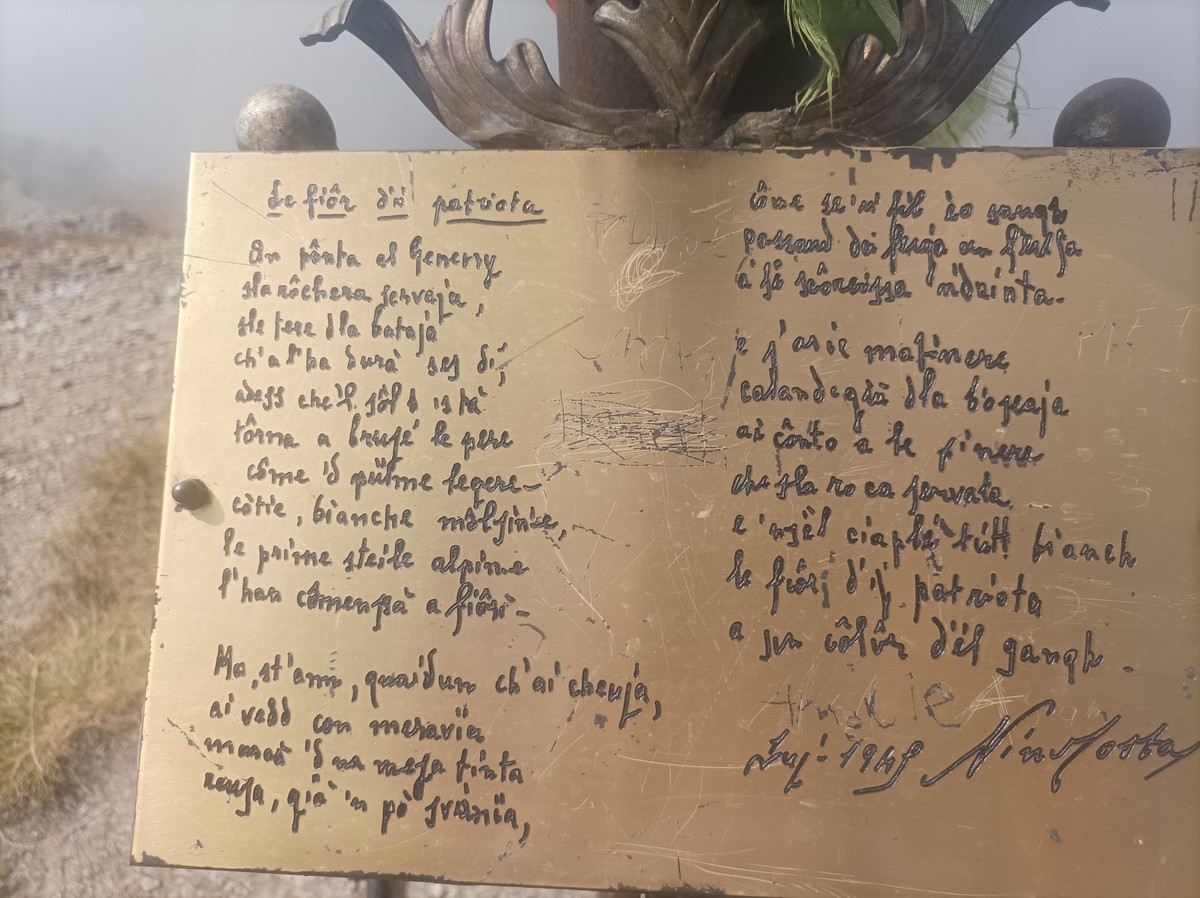 Le fiôr dij patriota
An pônta al Generry
sla rôchera servaja,
sle pere dla bataja
ch'a l'ha durà ses dì,
adess che'l sôl d'istà
tôrna a brusé le pere
côme 'd piüme legere
côtìe, bianche
le prime steile alpine
l'han cômensà a fiôrì-
Ma, st'ann, quaidun ch'ai cheuja,
ai vedd con meravìa
mascà 'd na mesa tinta
reusa, già 'n pò svanìa,
côme se 'n fil ëd sangh
passand da feuja an feuja
a fë scôreissa 'ndrinta.
e j'arie matinere
caland giü dla
ai cônto a le
che sla roca servaia
e 'nsël ciaplé tütt bianch
le fiôrj d'ij patriota
a sun côlôr dël sangh.
Luj-1949 Nino Costa